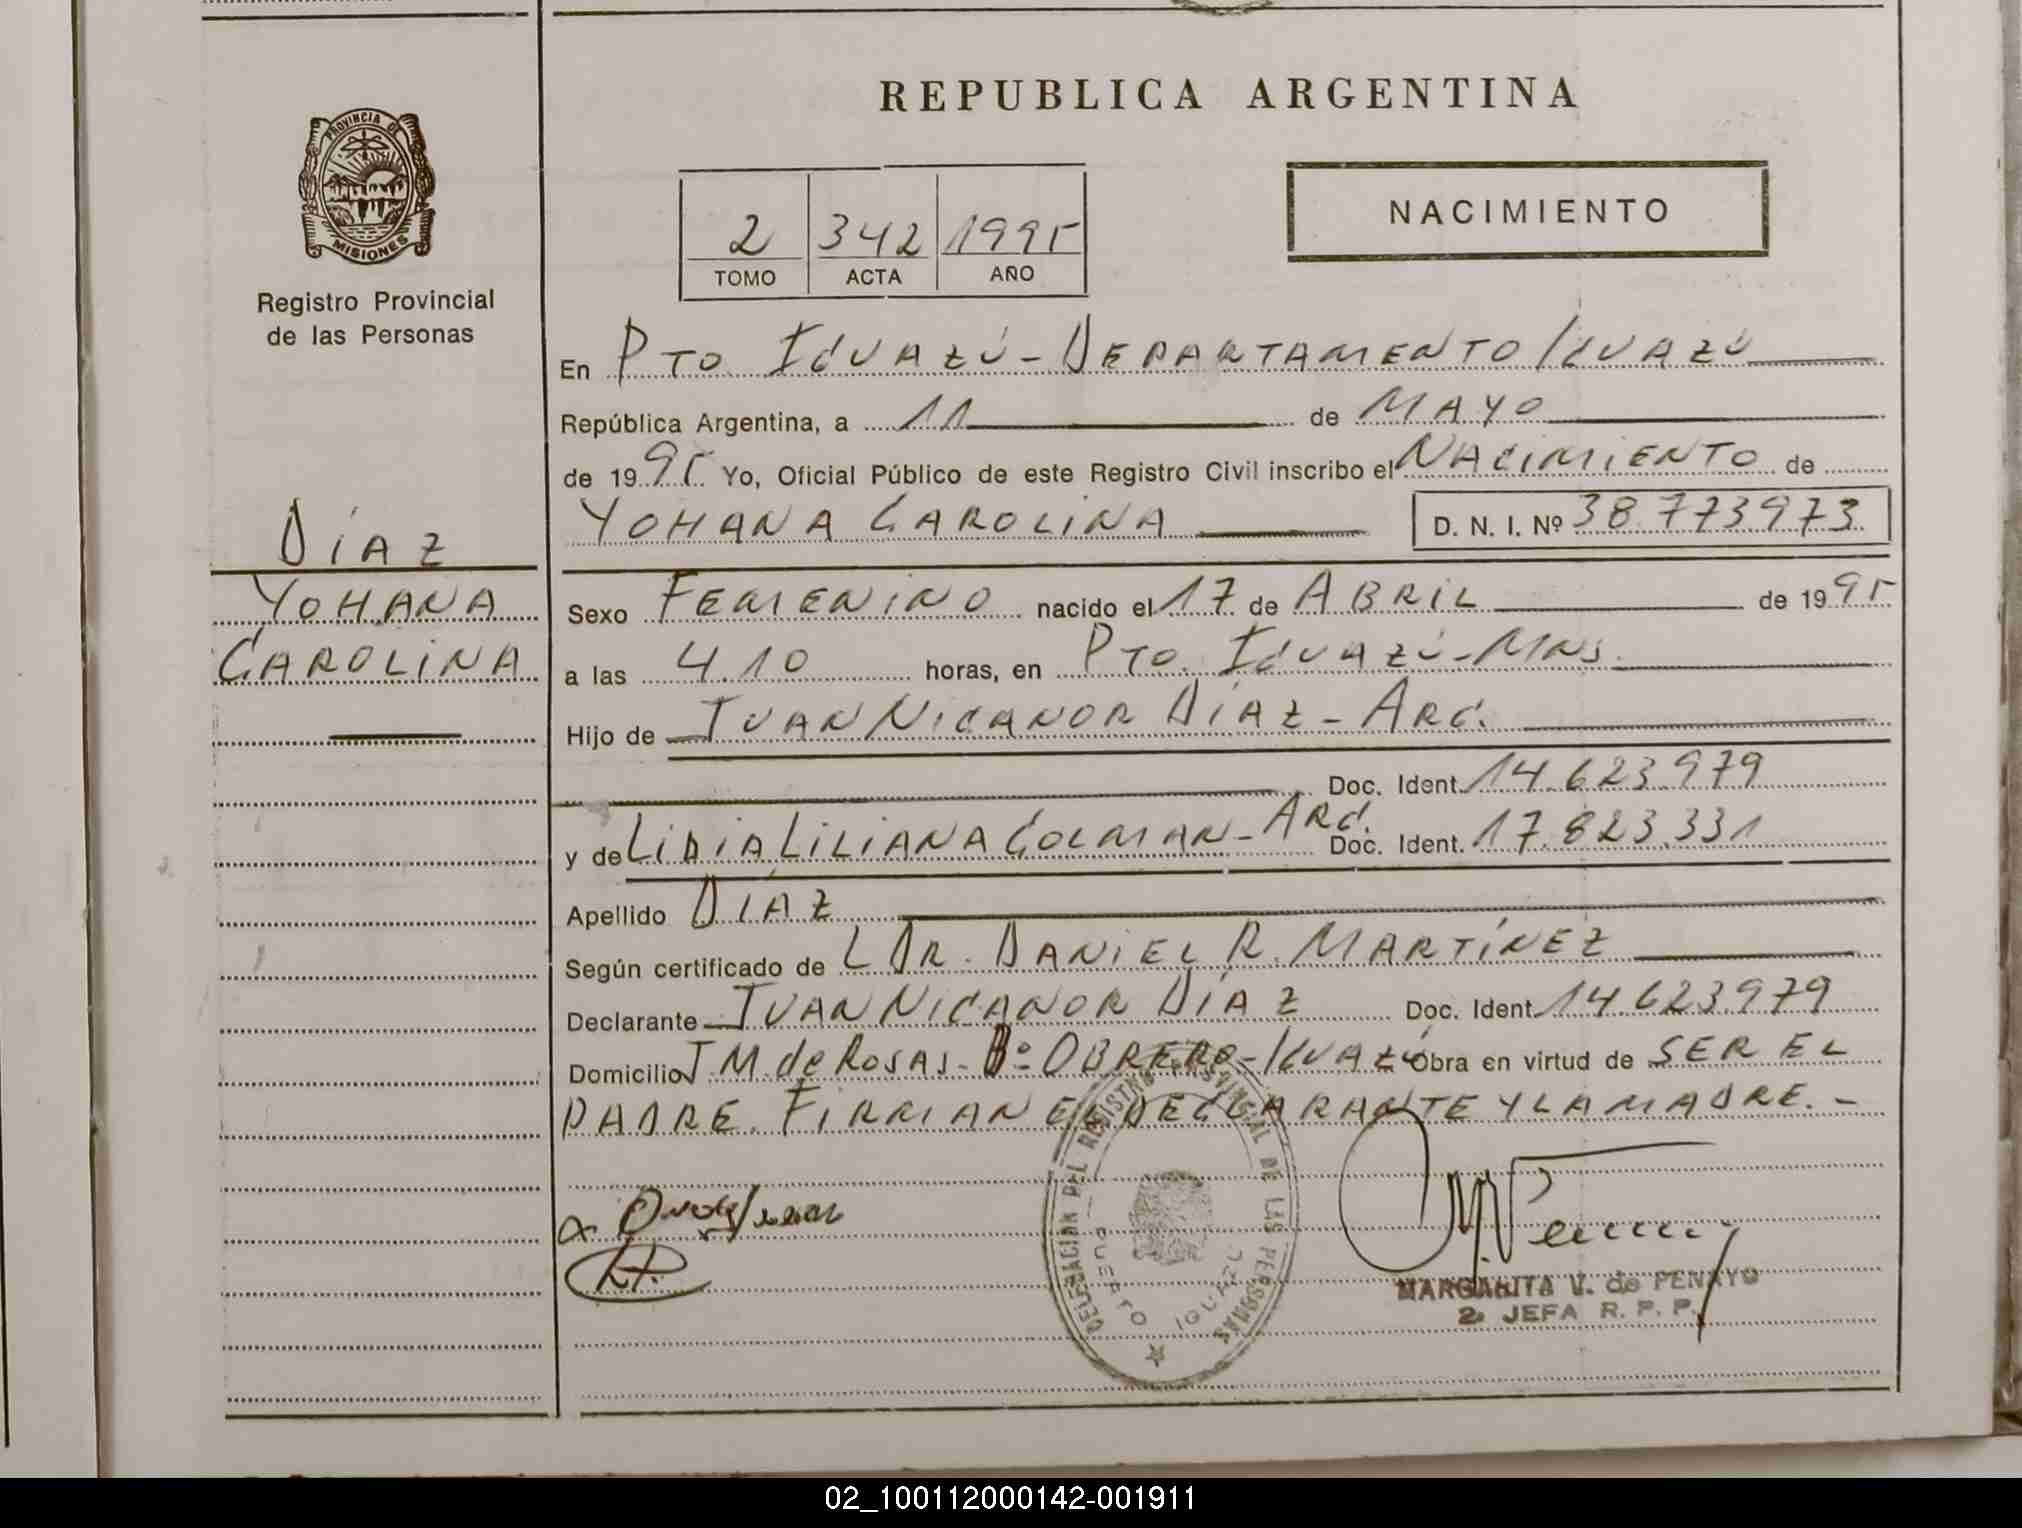 REPUBLICA ARGENTINA
PROVINCIA DE
MISIONES
Registro Provincial
de las Personas
2 342 1995
TOMO ACTA AÑO
NACIMIENTO
En Pto Iguazú - Departamento Iguazú
República Argentina, a 11 de Mayo
de 1995 Yo, Oficial Público de este Registro Civil inscribo el Nacimiento de
Yohana Carolina D. N. I. Nº 38.773973
Díaz
Yohana
Carolina
Sexo Femenino nacido el 17 de Abril de 1995
a las 4.10 horas, en Pto. Iguazú - Mns.
Hijo de Juan Nicanor Díaz - Arg.
Doc. Ident. 14.623.979
y de Lidia Liliana Colman - Arg. Doc. Ident. 17.823.331
Apellido Díaz
Según certificado de L Dr. Daniel R. Martínez
Declarante Juan Nicanor Díaz Doc. Ident. 14.623.979
Domicilio J M. de Rosas - Bº Obrero - Iguazú Obra en virtud de ser el
padre. Firman el declarante y la madre. -
DELEGACION DEL REGISTRO PROVINCIAL DE LAS PERSONAS
PUERTO IGUAZU
MARGARITA V. de PENAYO
2ª JEFA R. P. P.
02_100112000142-001911